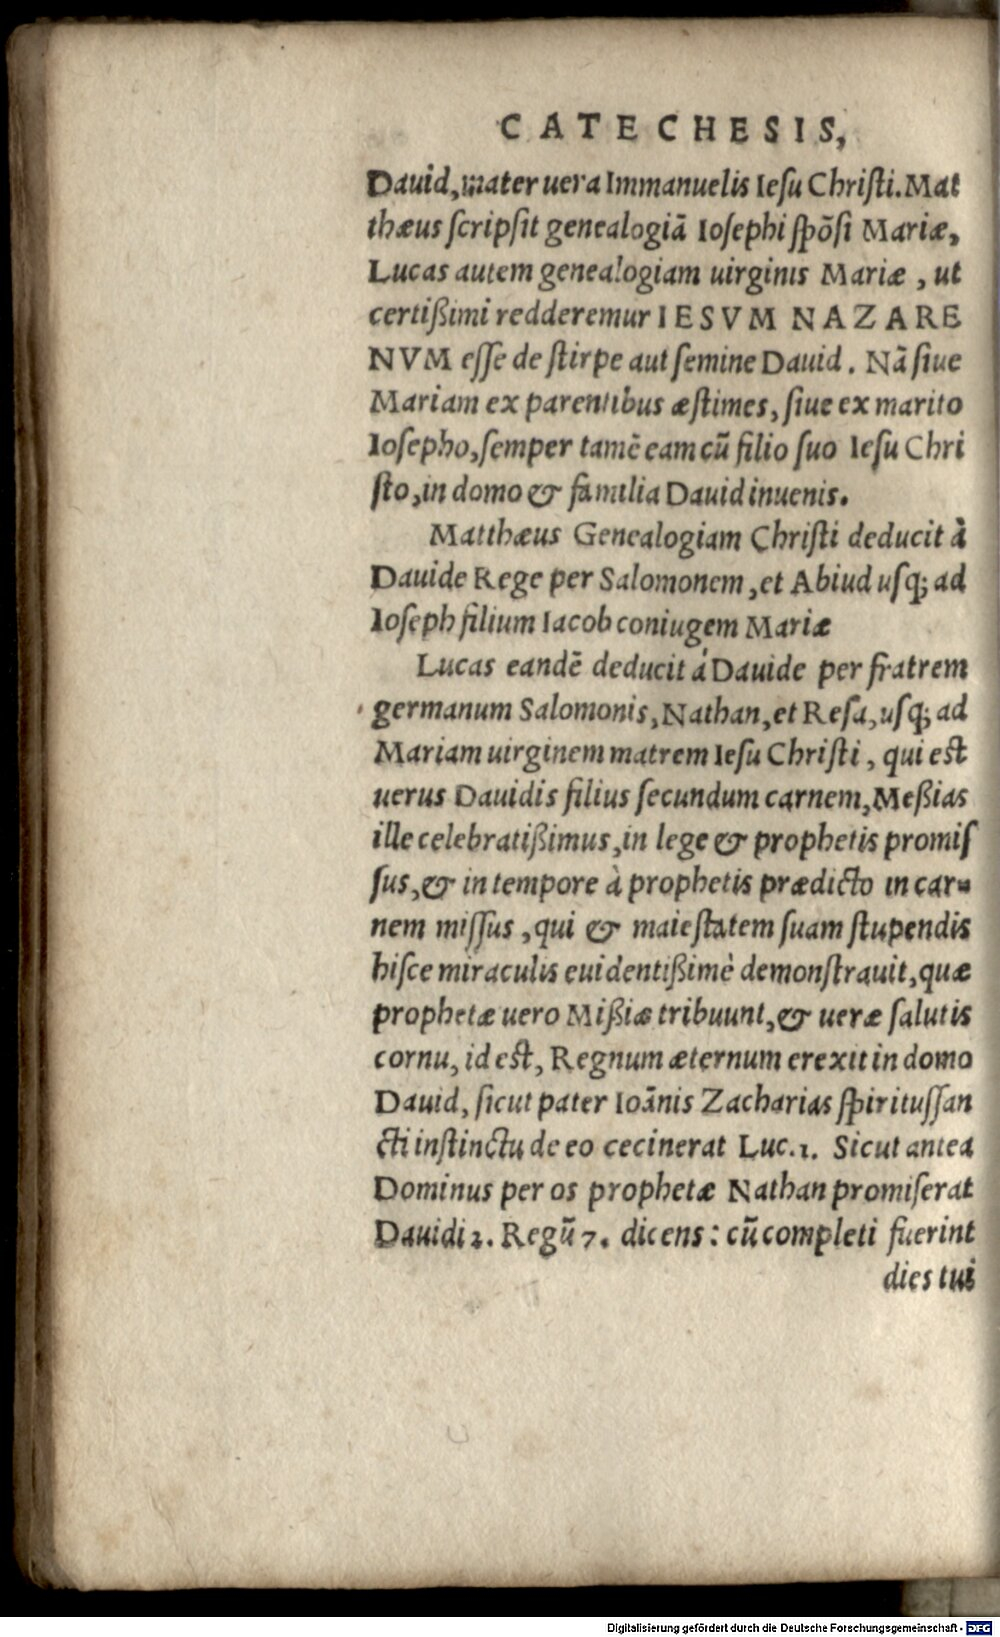 CATECHESIS,
Dauid, mater uera Immanuelis Iesu Christi. Mat
thæus scripsit genealogiā Iosephi spōsi Mariæ,
Lucas autem genealogiam uirginis Mariæ, ut
certißimi redderemur IESVM NAZARE
NVM esse de stirpe aut semine Dauid. Nā siue
Mariam ex parentibus æstimes, siue ex marito
Iosepho, semper tamē eam cū filio suo Iesu Chri
sto, in domo & familia Dauid inuenis.
Matthæus Genealogiam Christi deducit à
Dauide Rege per Salomonem, et Abiud usq; ad
Ioseph filium Iacob coniugem Mariæ
Lucas eandē deducit á Dauide per fratrem
germanum Salomonis, Nathan, et Resa, usq; ad
Mariam uirginem matrem Iesu Christi, qui est
uerus Dauidis filius secundum carnem, Meßias
ille celebratißimus, in lege & prophetis promis
sus, & in tempore à prophetis prædicto in car-
nem missus, qui & maiestatem suam stupendis
hisce miraculis euidentißimè demonstrauit, quæ
prophetæ uero Mißiæ tribuunt, & ueræ salutis
cornu, id est, Regnum æternum erexit in domo
Dauid, sicut pater Ioānis Zacharias spiritussan
cti instinctu de eo cecinerat Luc. 1. Sicut antea
Dominus per os prophetæ Nathan promiserat
Dauidi 2. Regū 7. dicens: cū completi fuerint
dies tui
Digitalisierung gefördert durch die Deutsche Forschungsgemeinschaft - DFG